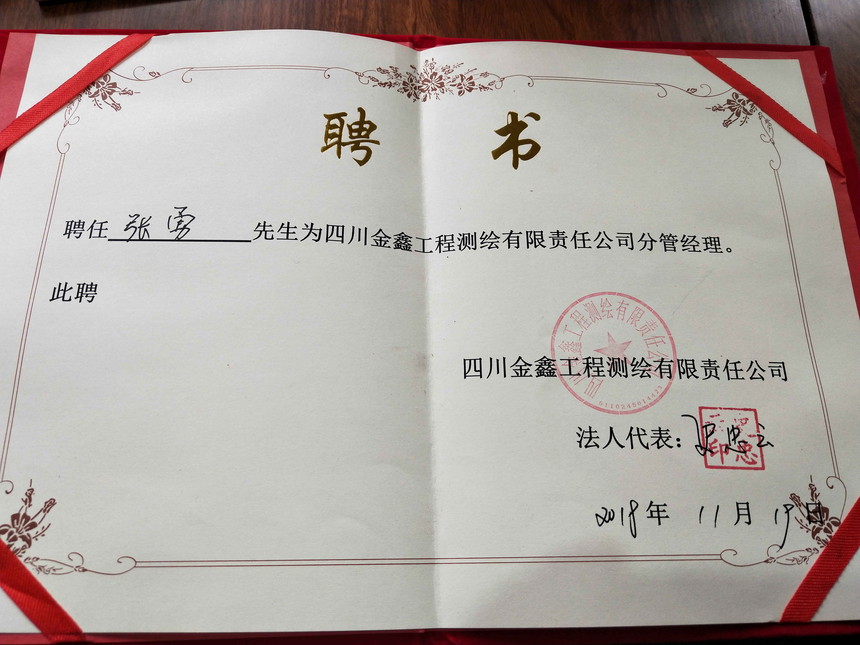 聘书
聘任 张勇 先生为四川金鑫工程测绘有限责任公司分管经理。
此聘
四川金鑫工程测绘有限责任公司
四川金鑫工程测绘有限责任公司
法人代表：
2018年 11月 19日